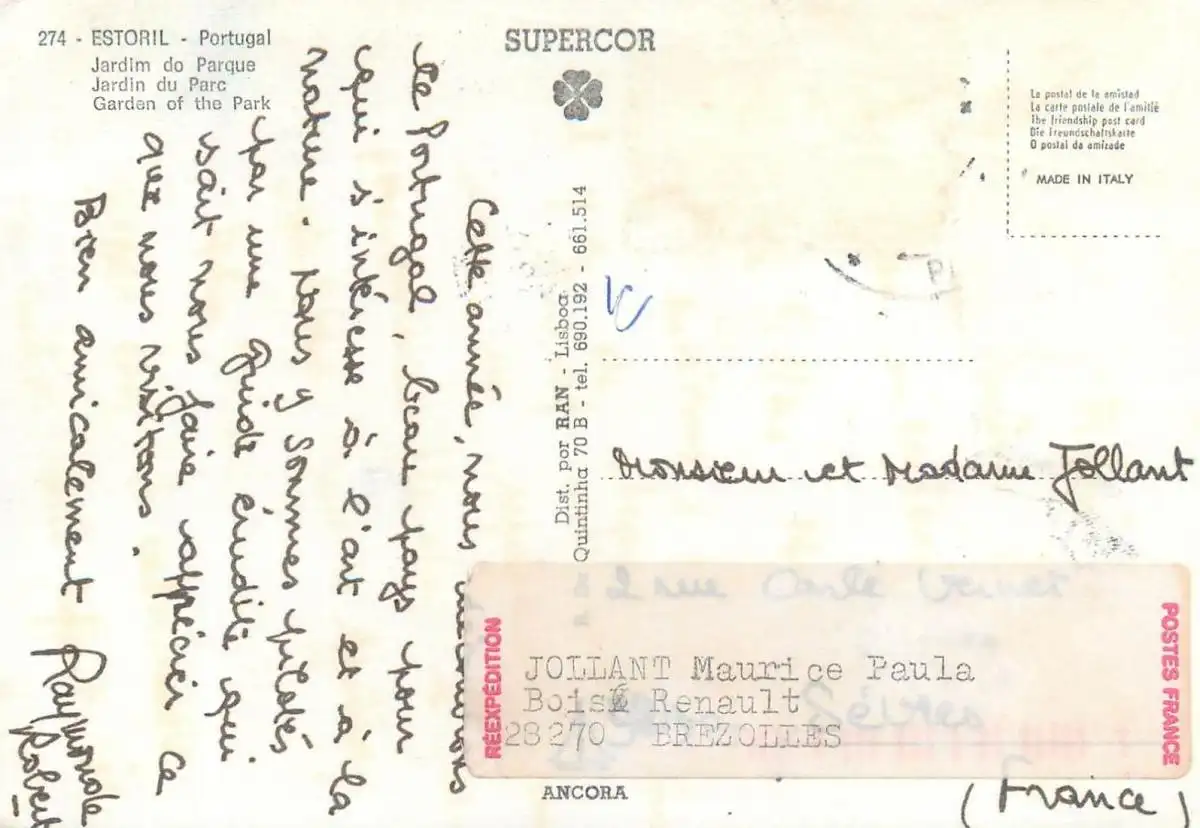 274 - ESTORIL - Portugal
Jardim do Parque
Jardin du Parc
Garden of the Park
SUPERCOR
La postal de la amistad
La carte postale de l'amitié
The friendship post card
Die Freundschaftskarte
O postal da amizade
MADE IN ITALY
Cette année, nous
le Portugal, beau pays pour
qui s'intéresse à l'art et à la
nature. Nous y sommes pilotés
par une guide érudite qui
sait nous faire apprécier ce
que nous visitons.
Bien amicalement
Raymonde
Robert
Dist. por RAN - Lisboa
Quintinha 70 B - tel. 690.192 - 661.514
Monsieur et Madame Jollant
2 rue Carle Vernet
Sèvres
RÉEXPÉDITION
JOLLANT Maurice Paula
Bois Renault
28270 BREZOLLES
POSTES FRANCE
(France)
ANCORA